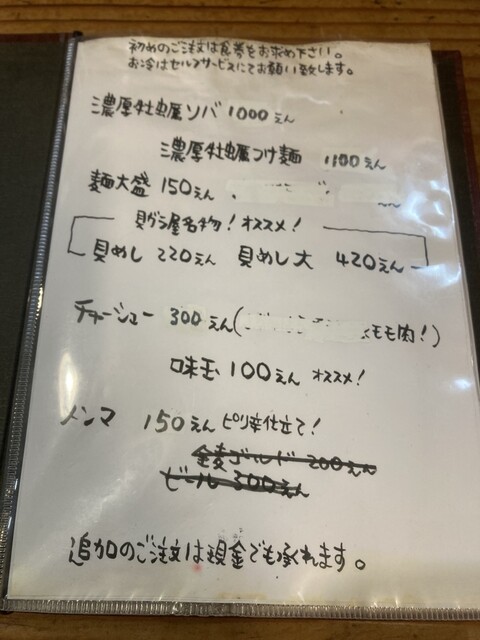 初めのご注文は食券をお求め下さい。
お冷はセルフサービスにてお願い致します。
濃厚牡蠣ソバ 1000えん
濃厚牡蠣つけ麺 1100えん
麺大盛 150えん
貝がら屋名物!オススメ!
貝めし 220えん 貝めし大 420えん
チャーシュー 300えん( モモ肉!)
味玉 100えん オススメ!
メンマ 150えん ピリ辛仕立て!
金麦ゴールド 200えん
ビール 300えん
追加のご注文は現金でも承れます。